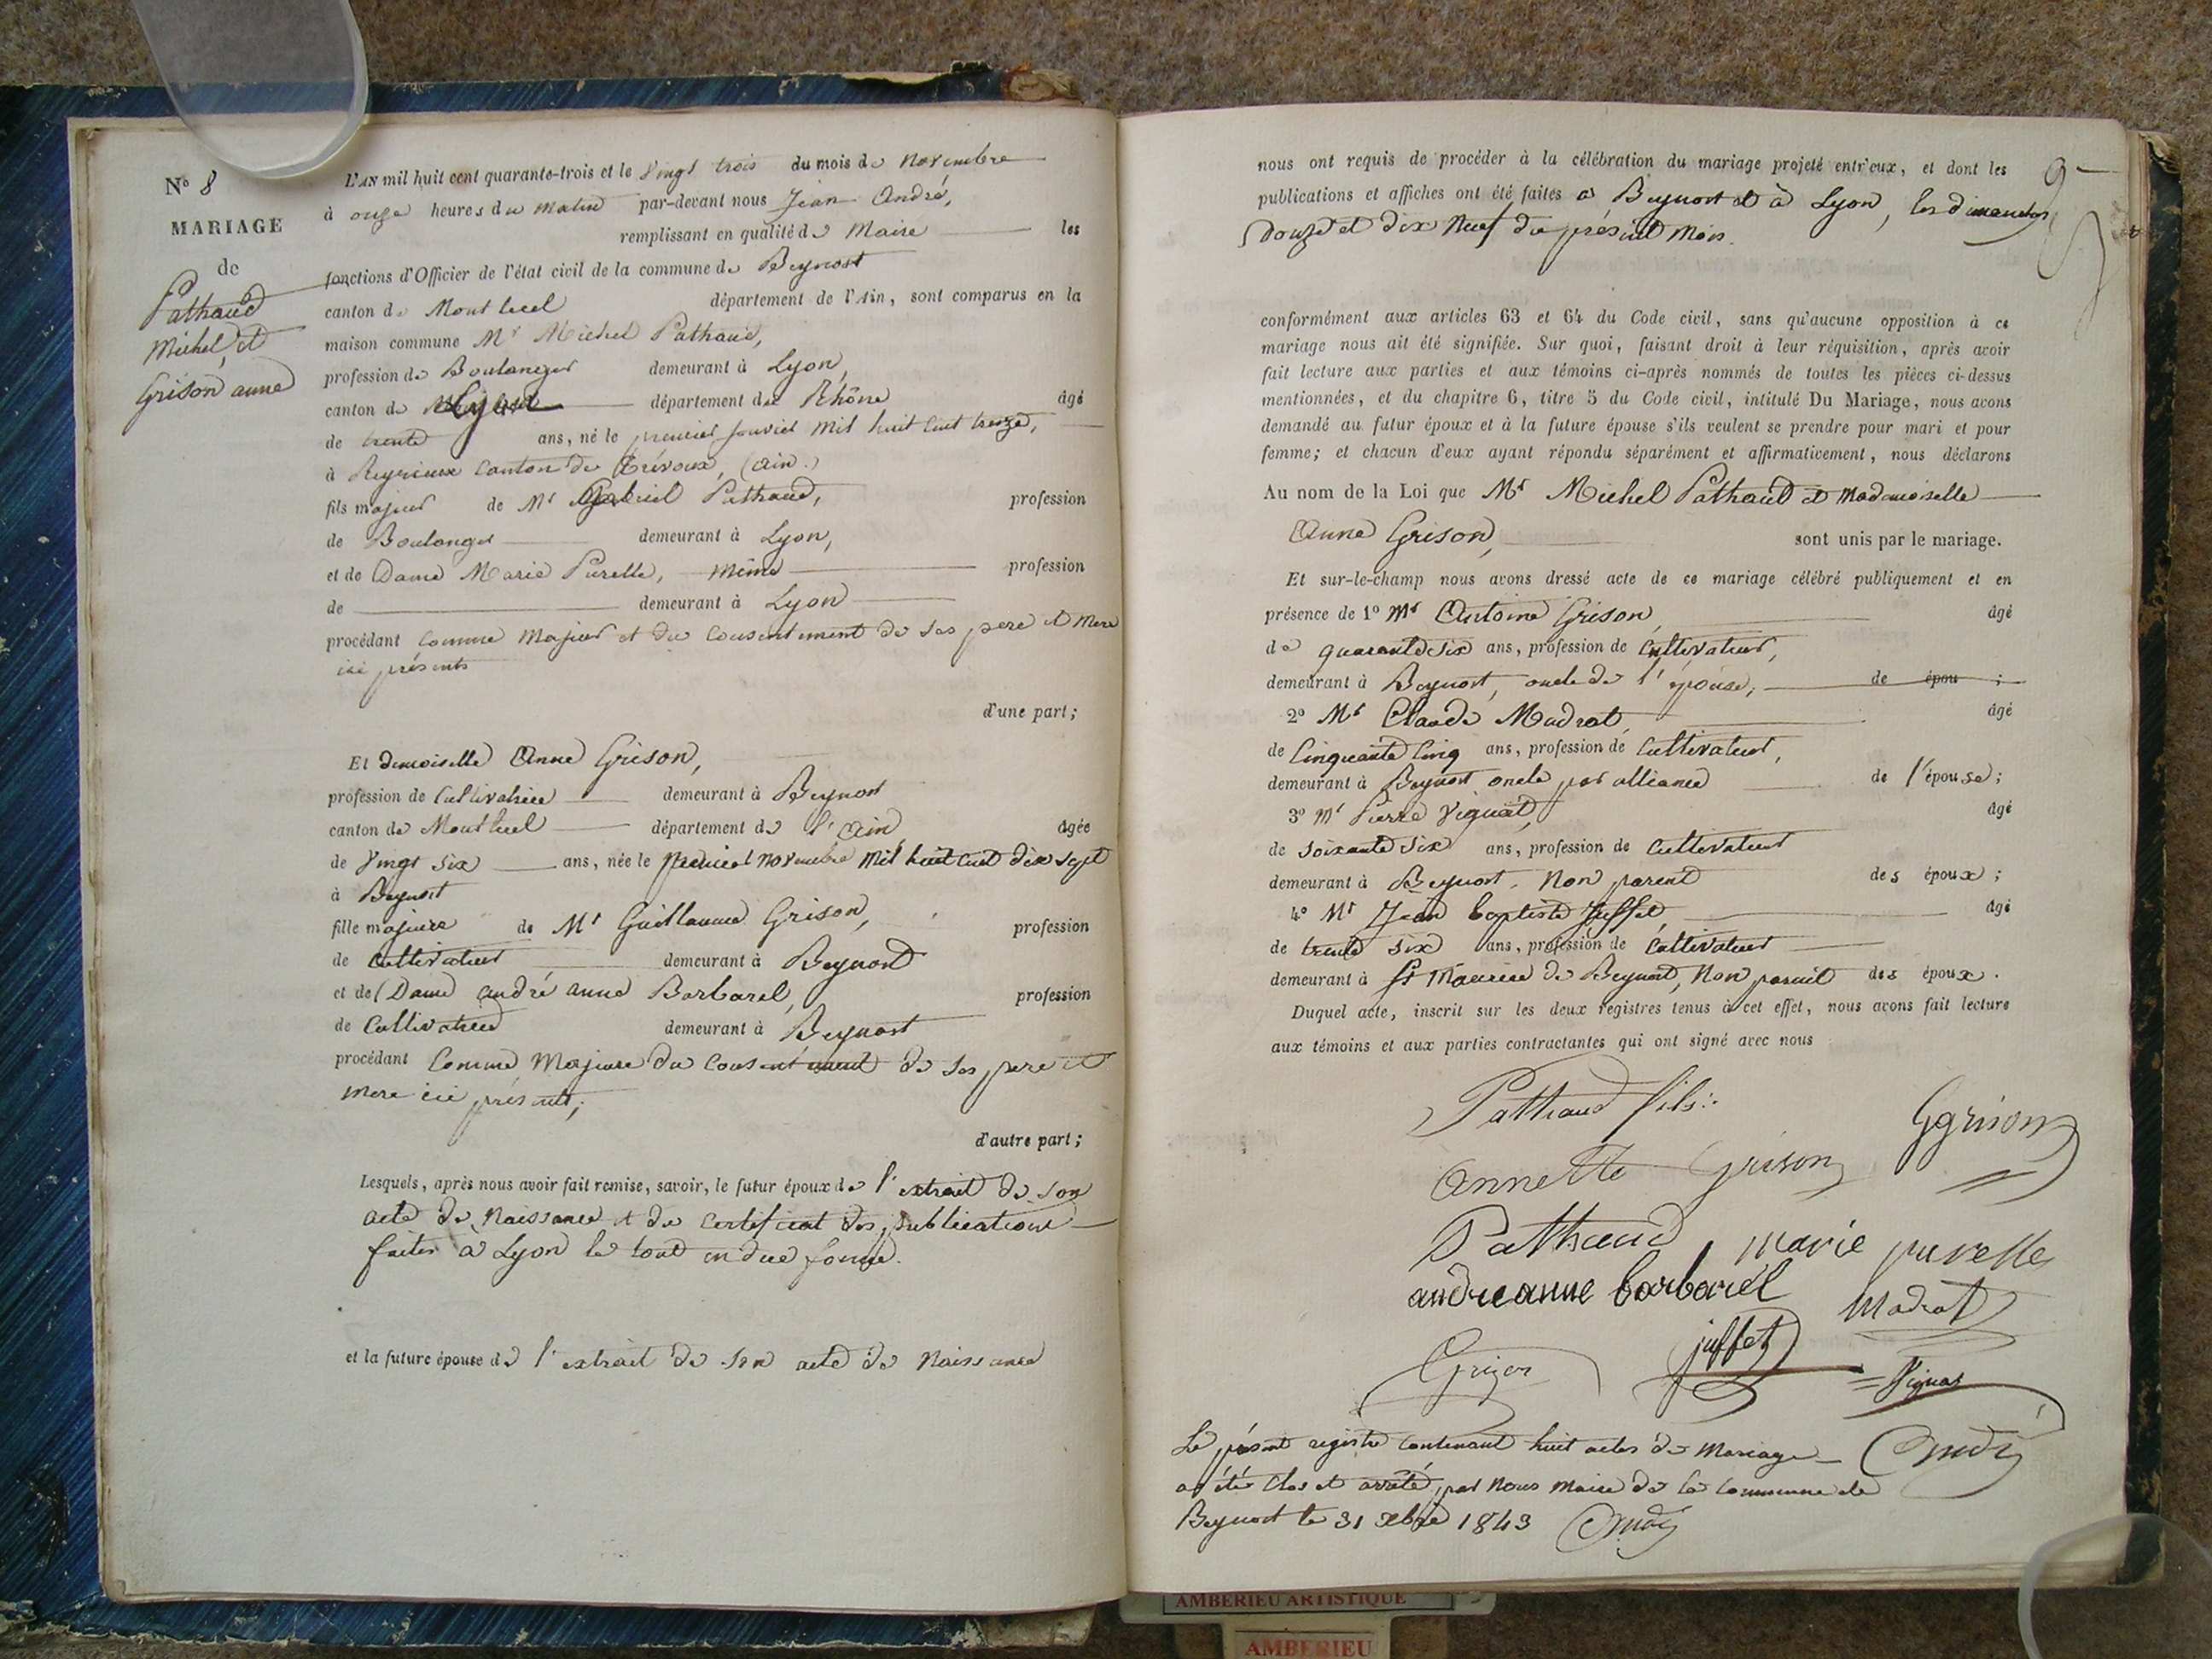 N° 8
MARIAGE
de
Pathaud
Michel, et
Grison anne
L'AN mil huit cent quarante-trois et le vingt trois du mois de Novembre
à onze heures du matin par-devant nous Jean André,
remplissant en qualité de Maire les
fonctions d'Officier de l'état civil de la commune de Beynost
canton de Montluel département de l'Ain, sont comparus en la
maison commune Mr Michel Pathaud,
profession de Boulanger demeurant à Lyon,
canton de Lyon département du Rhône âgé
de trente ans, né le premier janvier mil huit cent treize,
à Reyrieux canton de Trévoux, (ain.)
fils majeur de Mr Gabriel Pathaud, profession
de Boulanger demeurant à Lyon,
et de Dame Marie Purelle, même profession
de demeurant à Lyon
procédant comme majeur et du consentement de ses pere et mere
ici présents
d'une part;
Et demoiselle Anne Grison,
profession de cultivatrice demeurant à Beynost
canton de Montluel département de l'Ain âgée
de vingt six ans, née le premier novembre mil huit cent dix sept
à Beynost
fille majeure de Mr Guillaume Grison, profession
de cultivateur demeurant à Beynost
et de Dame andré anne Barbarel, profession
de cultivatrice demeurant à Beynost
procédant comme majeure du consentement de ses pere et
mere ici présents;
d'autre part;
Lesquels, après nous avoir fait remise, savoir, le futur époux de l'extrait de son
acte de naissance et du certificat des publications
faites à Lyon le tout en due forme.
et la future épouse de l'extrait de son acte de naissance
9
nous ont requis de procéder à la célébration du mariage projeté entr'eux, et dont les
publications et affiches ont été faites à Beynost et à Lyon, les dimanches
douze et dix neuf du présent mois.
conformément aux articles 63 et 64 du Code civil, sans qu'aucune opposition à ce
mariage nous ait été signifiée. Sur quoi, faisant droit à leur réquisition, après avoir
fait lecture aux parties et aux témoins ci-après nommés de toutes les pièces ci-dessus
mentionnées, et du chapitre 6, titre 5 du Code civil, intitulé Du Mariage, nous avons
demandé au futur époux et à la future épouse s'ils veulent se prendre pour mari et pour
femme; et chacun d'eux ayant répondu séparément et affirmativement, nous déclarons
Au nom de la Loi que Mr Michel Pathaud et Mademoiselle
Anne Grison, sont unis par le mariage.
Et sur-le-champ nous avons dressé acte de ce mariage célébré publiquement et en
présence de 1° Mr Antoine Grison, âgé
de quarante six ans, profession de cultivateur,
demeurant à Beynost, oncle de l'épouse, de épou ;
2° Mr Claude Madrat, âgé
de cinquante cinq ans, profession de cultivateur,
demeurant à Beynost oncle par alliance de l'épouse;
3° Mr Pierre Vignat, âgé
de soixante six ans, profession de cultivateur
demeurant à Beynost, non parent des époux;
4° Mr Jean baptiste Juffet, âgé
de trente six ans, profession de cultivateur
demeurant à St Maurice de Beynost, non parent des époux.
Duquel acte, inscrit sur les deux registres tenus à cet effet, nous avons fait lecture
aux témoins et aux parties contractantes qui ont signé avec nous
Pathaud fils
Ggrison
Annette Grison
Pathaud marie purelle
andreanne barbarel Madrat
Grizon juffet Vignat
Le présent registre contenant huit actes de mariage André
a été clos et arrêté, par nous maire de la commune de
Beynost le 31 xbre 1843 André
AMBERIEU ARTISTIQUE
AMBERIEU